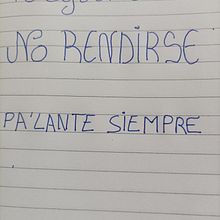 No RENDIRSE
PA'LANTE SIEMPRE